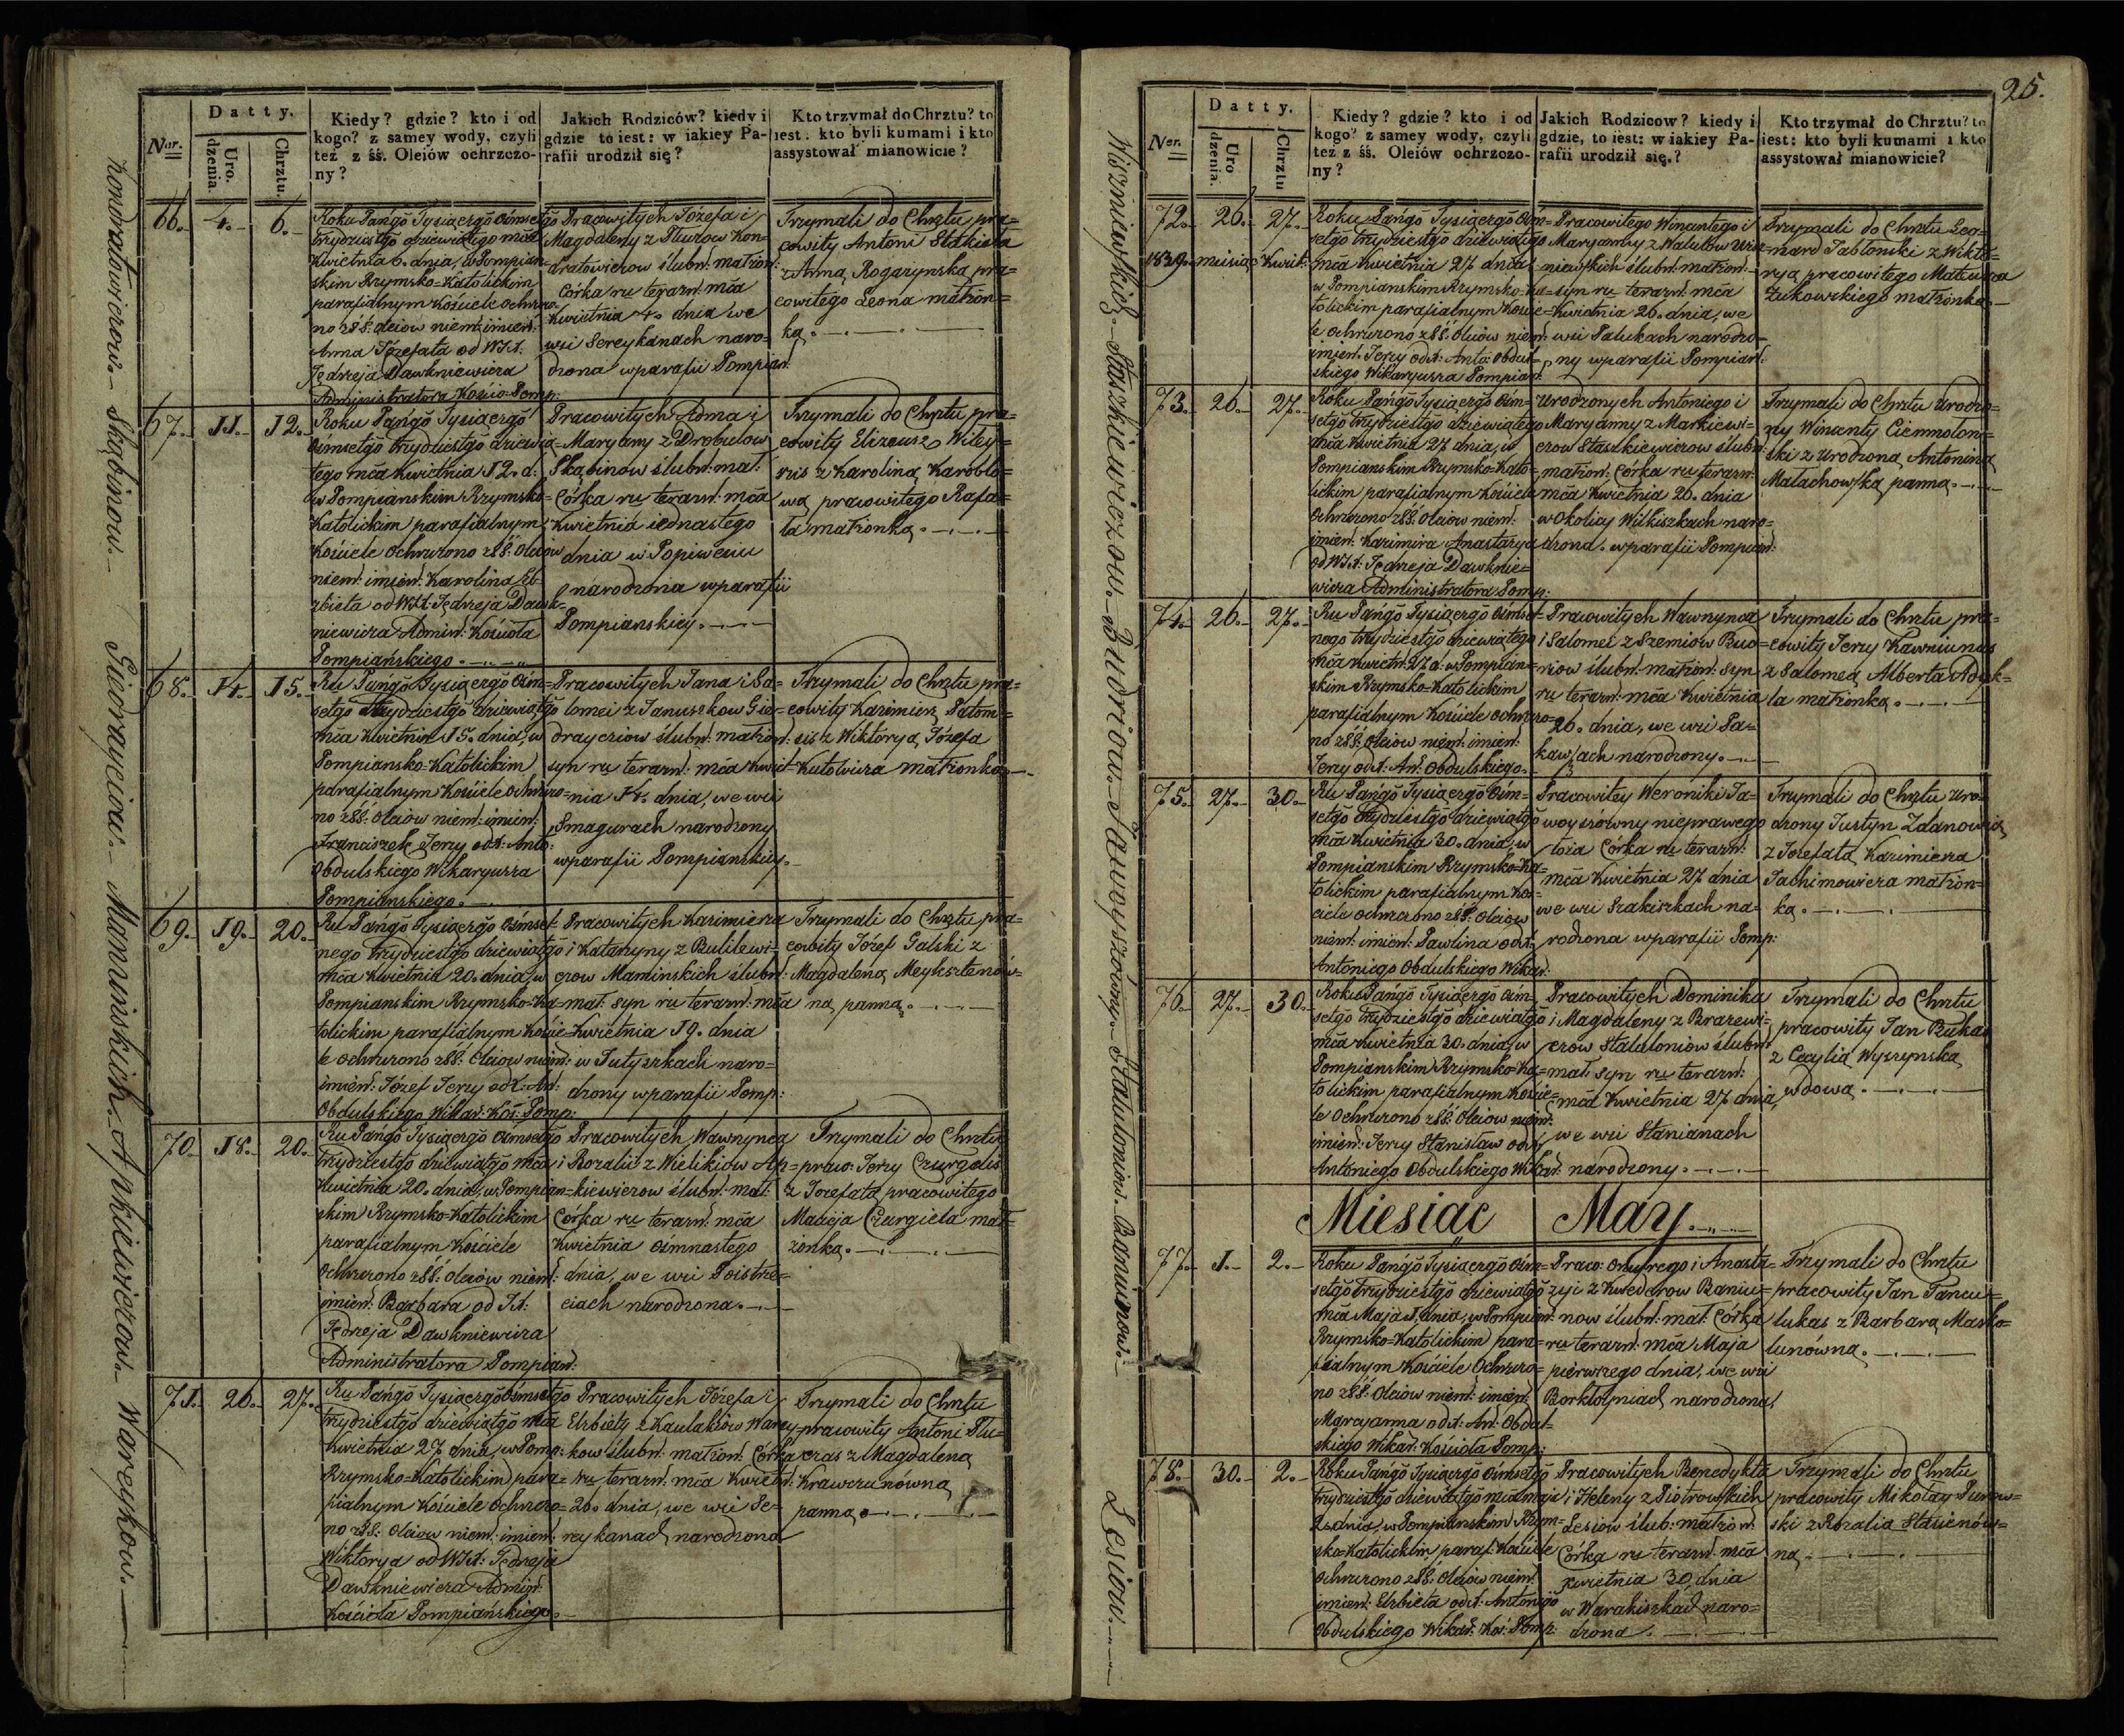 Kondratowiczow. – Skąbinow. – Giedrayciow. – Maminskich. – Apkiewiczow. – Wareykow.
Ner.
Datty.
Uro.
dzenia.
Chrztu.
Kiedy? gdzie? kto i od
kogo? z samey wody, czyli
też z śś. Oleiów ochrzczo-
ny?
Jakich Rodziców? kiedy i
gdzie to iest: w iakiey Pa-
rafii urodził się?
Kto trzymał do Chrztu? to
iest: kto byli kumami i kto
assystował mianowicie?
66. 4. 6.
Roku Pańgo Tysiącgo Ośmsetgo
trzydziestgo dziewiątego mca
Kwietnia 6. dnia, w Pompian=
skim Rzymsko=Katolickim
parafialnym Kościele ochrzczo=
no z SS. oleiow niem: imien:
Anna Józefata od WJX.
Jędrzeja Dawkniewicza
Administratora Kościo: Pomp:
Pracowitych Józefa i
Magdaleny z Tluzow Kon=
dratowiczow ślubn: małżon:
Córka ru terazn: mca
Kwietnia 4. dnia we
wsi Sereykanach naro=
dzona w parafii Pompian:
Trzymali do Chrztu pra=
cowity Antoni
z Anną Rogazynską pra=
cowitego Leona małżon=
ką.
67. 11. 12.
Roku Pańgo Tysiącgo
Ośmsetgo trzydziestgo dziewią=
tego mca Kwietnia 12. d:
w Pompianskim Rzymsko=
Katolickim parafialnym
Kościele Ochrzczono z SS. Oleiow
niem: imien: Karolina El=
zbieta od WJX: Jędrzeja Dawk=
niewicza Admin: Kościoła
Pompiańskiego.
Pracowitych Adma i
Maryany z Drobulow
Skąbinow ślubn: mał:
Córka ru terazn: mca
Kwietnia iednastego
dnia w Popiweciu
narodzona w parafii
Pompianskiey.
Trzymali do Chrztu pra=
cowity Elizeusz Witey=
zis z Karoliną Karoblo=
wą pracowitego Rafa=
ła małżonką.
68. 14. 15.
Ru Pańgo Tysiącgo Ośm=
setgo trzydziestgo dziewiątgo
mca Kwietnia 15. dnia, w
Pompiansko-Katolickim
parafialnym Kościele ochrzczo=
no z SS: Oleiow niem: imien:
Franciszek Jerzy od X: Anto:
Obdulskiego Wikaryusza
Pompianskiego.
Pracowitych Jana i Sa=
lomei z Januszkow Gie=
drayciow ślubn: małżon:
syn ru terazn: mca Kwiet=
nia 14. dnia, we wsi
Smagurach narodzony
w parafii Pompianskiey.
Trzymali do Chrztu pra=
cowity Kazimierz Patom=
sis z Wiktoryą Józefa
Kutowicza małżonką.
69. 19. 20.
Ru Pańgo Tysiącgo Ośmset=
nego trzydziestgo dziewiątgo
mca Kwietnia 20. dnia, w
Pompianskim Rzymsko=Ka=
tolickim parafialnym Koście=
le ochrzczono z SS: Oleiow niem:
imien: Józef Jerzy od X: An:
Obdulskiego Wikar: Koś: Pomp:
Pracowitych Kazimierza
i Katarzyny z Bulilewi=
czow Maminskich ślubn:
mał: syn ru terazn: mca
Kwietnia 19. dnia
w Jutyszkach naro=
dzony w parafii Pomp:
Trzymali do Chrztu pra=
cowity Józef Galski z
Magdaleną Meyksztenów=
ną panną.
70. 18. 20.
Ru Pańgo Tysiącgo Ośmsetgo
trzydziestgo dziewiątgo mca
Kwietnia 20. dnia, w Pompian=
skim Rzymsko=Katolickim
parafialnym Kościele
Ochrzczono z SS: Oleiow niem:
imien: Barbara od JX:
Jędrzeja Dawkniewicza
Administratora Pompian:
Pracowitych Wawrzynca
i Rozalii z Wielikiow Ap=
kiewiczow ślubn: mał:
Córka ru terazn: mca
Kwietnia ośmnastego
dnia, we wsi Poistrze=
ciach narodzona.
Trzymali do Chrztu
praco: Jerzy Czurgelis
z Jozefatą pracowitego
Macieja Czurgiela mał=
żonką.
71. 26. 27.
Ru Pańgo Tysiącgo Ośmsetgo
trzydziestgo dziewiątgo mca
Kwietnia 27 dnia, w Pomp:
Rzymsko=Katolickim para=
fialnym Kościele Ochrzczo=
no z SS: Oleiow niem: imien:
Wiktorya od WJX: Jędrzeja
Dawkniewicza Admin:
Kościoła Pompiańskiego.
Pracowitych Józefa i
Elzbiety z Kaulakiow Warey=
kow ślubn: małżon: Córka
ru terazn: mca Kwietn:
26. dnia, we wsi Se=
reykanach narodzona
Trzymali do Chrztu
pracowity Antoni Tlu=
czas z Magdaleną
Krawczunówną
panną.
25.
Wiszniewskich. – Staszkiewiczow. – Budriow. – Jawoyszówny. – Stalutoniow. – Baniunow. – Lesiow.
Ner.
Datty.
Uro
dzenia.
Chrztu
Kiedy? gdzie? kto i od
kogo? z samey wody, czyli
też z śś. Oleiów ochrzczo-
ny?
Jakich Rodzicow? kiedy i
gdzie, to iest: w iakiey Pa-
rafii urodził się?
Kto trzymał do Chrztu? to
iest: kto byli kumami i kto
assystował mianowicie?
72. 26. 27.
1839. miesiąc Kwiet:
Roku Pańgo Tysiącgo Ośm=
setgo trzydziestgo dziewiątego
mca Kwietnia 27 dnia
w Pompianskim Rzymsko=Ka=
tolickim parafialnym Koście=
le ochrzczono z SS: Oleiow niem:
imien: Jerzy od X: Anto: Obdul=
skiego Wikaryusza Pompian:
Pracowitego Winantego i
Maryanny z Walutow Wisz=
niewskich ślubn: małżon:
syn ru terazn: mca
Kwietnia 26. dnia, we
wsi Palukach narodzo=
ny w parafii Pompian:
Trzymali do Chrztu Leo=
nard Jabłoniski z Wikto=
ryą pracowitego Mateusza
Żukowskiego małżonką.
73. 26. 27.
Roku Pańgo Tysiącgo Ośm=
setgo trzydziestgo dziewiątego
mca Kwietnia 27 dnia, w
Pompianskim Rzymsko=Kato=
lickim parafialnym Kościele
Ochrzczono z SS: Oleiow niem:
imien: Kazimira Anastazya
od WJX: Jędrzeja Dawknie=
wicza Administratora Pomp:
Urodzonych Antoniego i
Maryanny z Markiewi=
czow Staszkiewiczow ślubn:
małżon: Córka ru terazn:
mca Kwietnia 26. dnia
w okolicy Wilkiszkach naro=
dzona. w parafii Pompian:
Trzymali do Chrztu Urodzo=
ny Winanty Ciemnolon=
ski z Urodzoną Antoniną
Małachowską panną.
74. 26. 27.
Ru Pańgo Tysiącgo Ośmset=
nego trzydziestgo dziewiątego
mca Kwietn: 27 d: w Pompian=
skim Rzymsko-Katolickim
parafialnym Kościele Ochrzczo=
no z SS: Oleiow niem: imien:
Jerzy od X: An: Obdulskiego.
Pracowitych Wawrzynca
i Salomei z Szemiow Bud=
riow ślubn: małżon: syn
ru terazn: mca Kwietnia
26. dnia, we wsi Pa=
kawsach narodzony.
Trzymali do Chrztu pra=
cowity Jerzy Kawniunas
z Salomeą Alberta Adyk=
la małżonką.
75. 27. 30.
Ru Pańgo Tysiącgo Ośm=
setgo trzydziestgo dziewiątgo
mca Kwietnia 30. dnia, w
Pompianskim Rzymsko-Ka=
tolickim parafialnym Koś=
ciele ochrzczono z SS. Oleiow
niem: imien: Pawlina od X:
Antoniego Obdulskiego Wikar:
Pracowitey Weroniki Ja=
woyszówny nieprawego
łoża Córka ru terazn:
mca Kwietnia 27 dnia
we wsi Szakiszkach na=
rodzona w parafii Pomp:
Trzymali do Chrztu Uro=
dzony Justyn Zdanowicz
z Jozefatą Kazimierza
Jachimowicza małżon=
ką.
76. 27. 30.
Roku Pańgo Tysiącgo Ośm=
setgo trzydziestgo dziewiątgo
mca Kwietnia 30. dnia, w
Pompianskim Rzymsko=Ka=
tolickim parafialnym Koście=
le Ochrzczono z SS: Oleiow niem:
imien: Jerzy Stanisław od X:
Antoniego Obdulskiego Wikar:
Pracowitych Dominika
i Magdaleny z Brazewi=
czow Stalutoniow ślubn:
mał: syn ru terazn:
mca Kwietnia 27 dnia,
we wsi Stanianach
narodzony.
Trzymali do Chrztu
pracowity Jan Bukas
z Cecylią Wyszynską
wdową.
Miesiąc May.
77. 1. 2.
Roku Pańgo Tysiącgo Ośm=
setgo trzydziestgo dziewiątgo
mca Maja 2 dnia, w Pompian:
Rzymsko=Katolickim para=
fialnym Kościele Ochrzczo=
no z SS: Oleiow niem: imien:
Maryanna od X: An: Obdul=
skiego Wikar: Kościoła Pomp:
Praco: Onufrego i Anasta=
zyi z Kwederow Baniu=
now ślubn: mał: Córka
ru terazn: mca Maja
pierwszego dnia, we wsi
Borkłoyniach narodzona.
Trzymali do Chrztu
pracowity Jan Jancu=
lukas z Barbarą Masko=
lunówną.
78. 30. 2.
Roku Pańgo Tysiącgo Ośmsetgo
trzydziestgo dziewiątgo mca maja
2. dnia, w Pompianskim Rzym=
sko-Katolickim paraf: Kościele
Ochrzczono z SS: Oleiow niem:
imien: Elzbieta od X: Antoniego
Obdulskiego Wikar: Koś: Pomp:
Pracowitych Benedykta
i Heleny z Piotrowskich
Lesiow ślub: małżon:
Córka ru terazn: mca
Kwietnia 30. dnia
w Warakiszkach naro=
dzona.
Trzymali do Chrztu
pracowity Mikołay Purow=
ski z Rozalią Stasienów=
ną